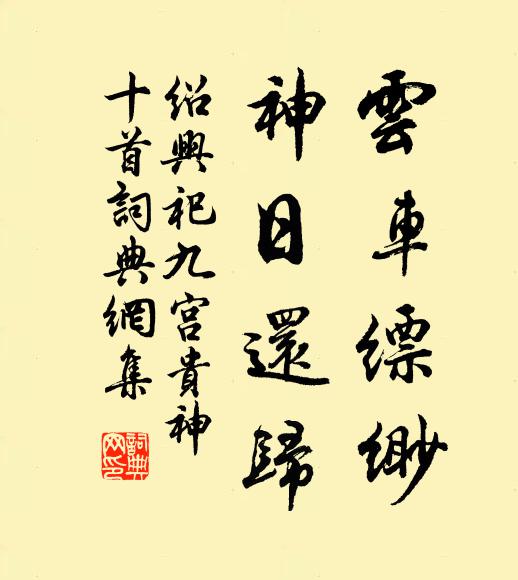 雲車縹緲
神日還歸
紹興祀九宮貴神
十首詞典網集
詞典網印